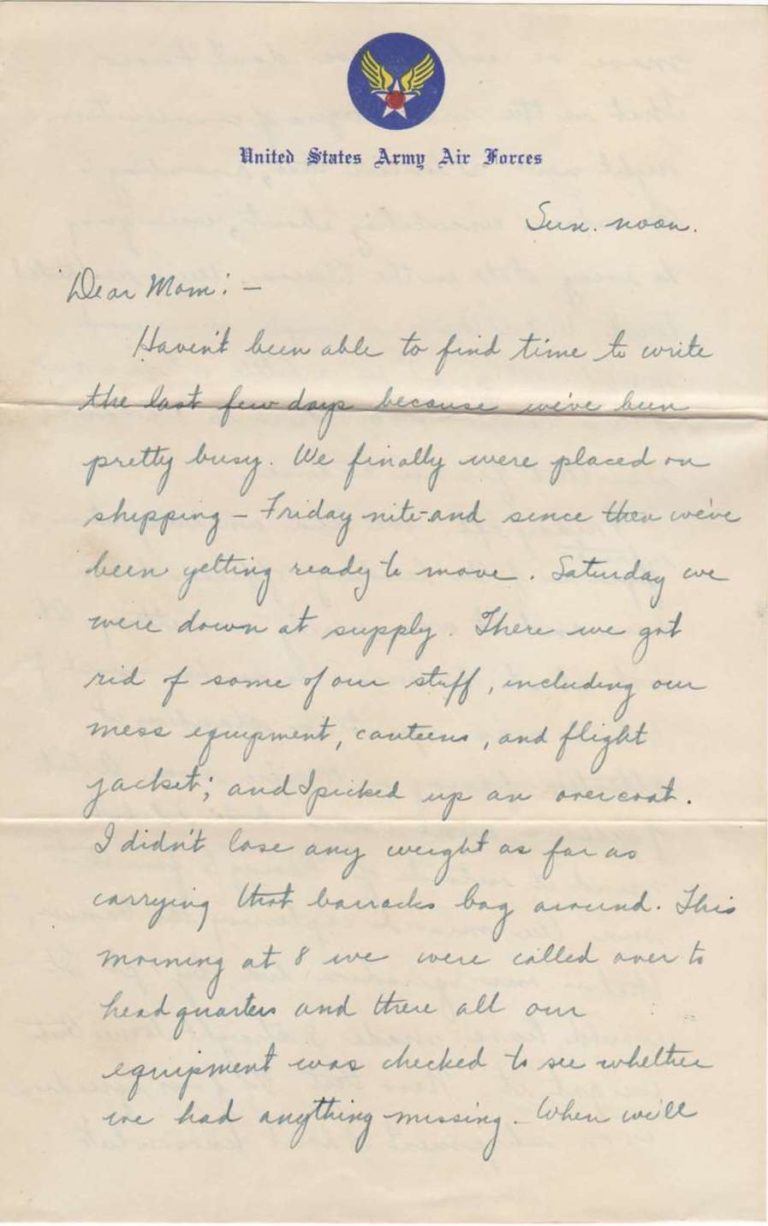 United States Army Air Forces
Sun. noon.
Dear Mom: –
Haven't been able to find time to write
the last few days because we've been
pretty busy. We finally were placed on
shipping – Friday nite – and since then we've
been getting ready to move. Saturday we
were down at supply. There we got
rid of some of our stuff, including our
mess equipment, canteens, and flight
jacket; and I picked up an overcoat.
I didn't lose any weight as far as
carrying that barracks bag around. This
morning at 8 we were called over to
headquarters and there all our
equipment was checked to see whether
we had anything missing. When we'll